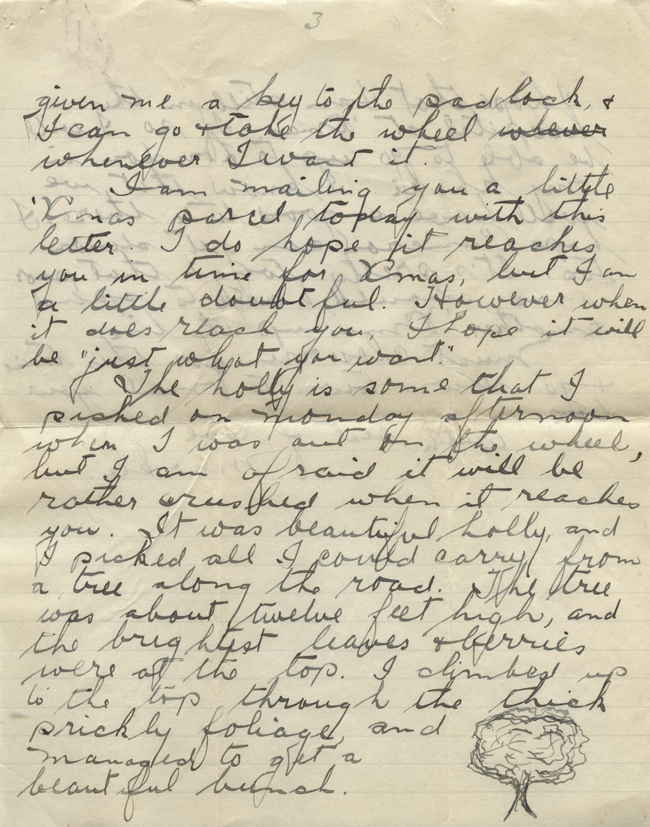 3
given me a key to the padlock, &
I can go & take the wheel whever
whenever I want it.
I am mailing you a little
'Xmas parcel today with this
letter. I do hope it reaches
you in time for Xmas, but I am
a little doubtful. However when
it does reach you, I hope it will
be "just what you want".
The holly is some that I
picked on Monday afternoon
when I was out on the wheel,
but I am afraid it will be
rather crushed when it reaches
you. It was beautiful holly, and
I picked all I could carry from
a tree along the road. The tree
was about twelve feet high, and
the brightest leaves & berries
were at the top. I climbed up
to the top through the thick
prickly foliage, and
managed to get a
beautiful bunch.